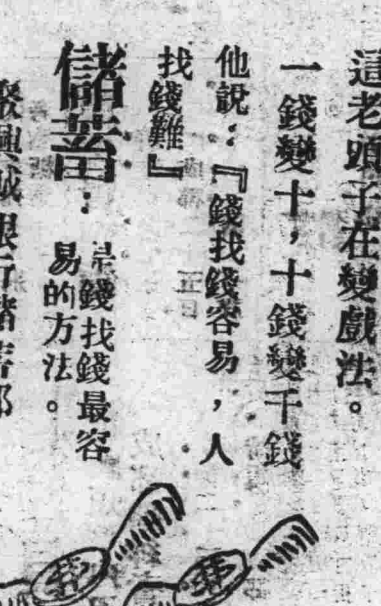 這老頭子在變戲法。
一錢變十，十錢變千錢
他說：『錢找錢容易，人
找錢難』
儲蓄：
是錢找錢最容
易的方法。
聚興誠銀行儲蓄部